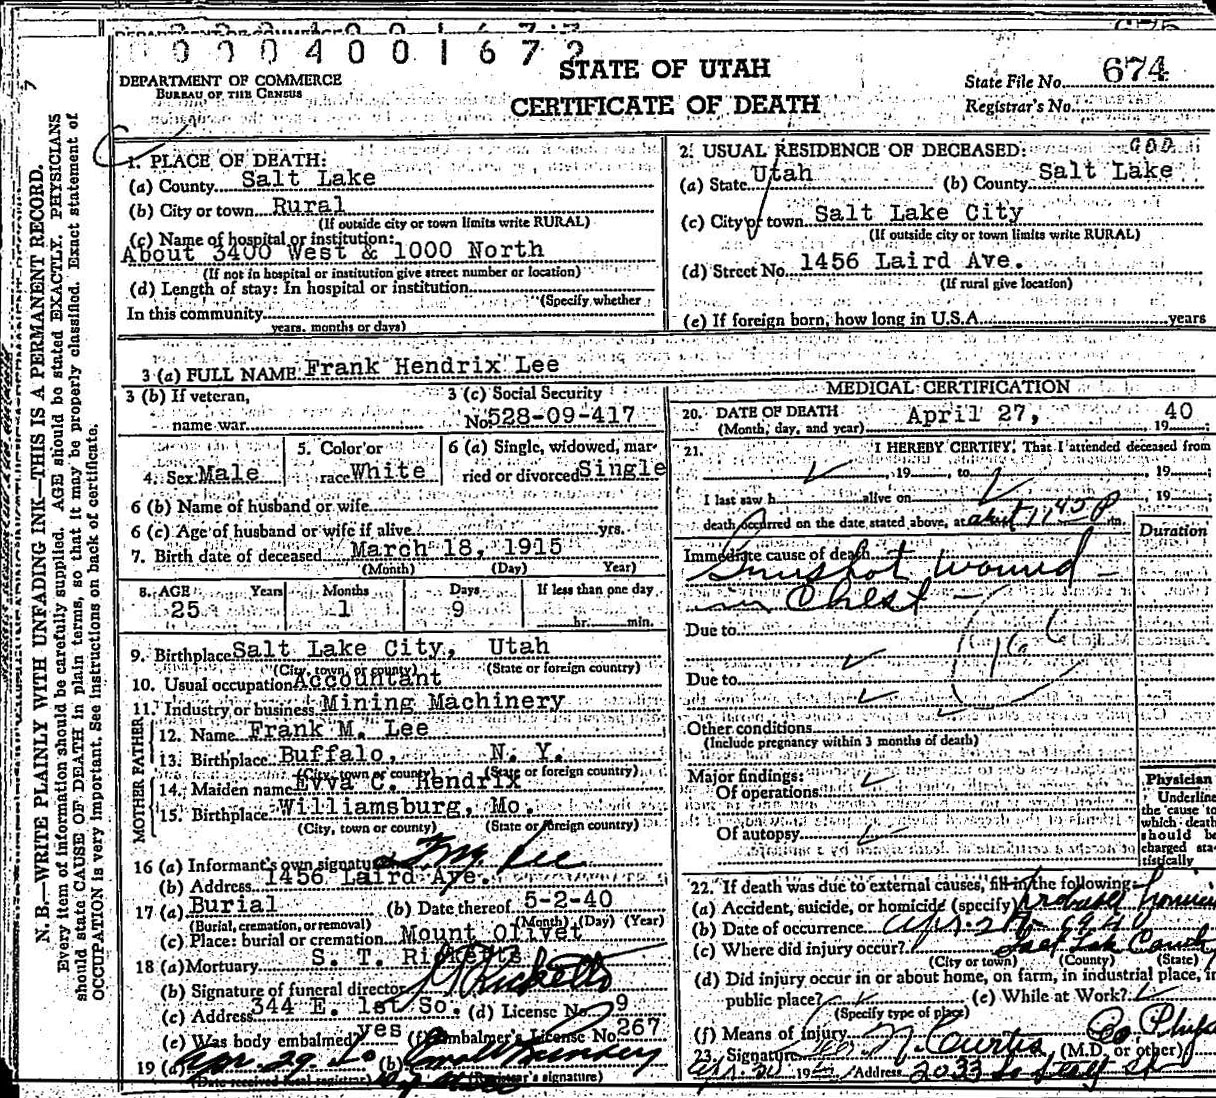 0 0 0 4 0 0 1 6 7 2
DEPARTMENT OF COMMERCE
BUREAU OF THE CENSUS
STATE OF UTAH
CERTIFICATE OF DEATH
State File No. 674
Registrar's No.
N. B.—WRITE PLAINLY WITH UNFADING INK—THIS IS A PERMANENT RECORD.
Every item of information should be carefully supplied. AGE should be stated EXACTLY. PHYSICIANS
should state CAUSE OF DEATH in plain terms, so that it may be properly classified. Exact statement of
OCCUPATION is very important. See instructions on back of certificate.
1. PLACE OF DEATH:
(a) County Salt Lake
(b) City or town Rural
(If outside city or town limits write RURAL)
(c) Name of hospital or institution:
About 3400 West & 1000 North
(If not in hospital or institution give street number or location)
(d) Length of stay: In hospital or institution
(Specify whether
In this community
years, months or days)
2. USUAL RESIDENCE OF DECEASED:
(a) State Utah (b) County Salt Lake
(c) City or town Salt Lake City
(If outside city or town limits write RURAL)
(d) Street No. 1456 Laird Ave.
(If rural give location)
(e) If foreign born, how long in U.S.A. years
3 (a) FULL NAME Frank Hendrix Lee
3 (b) If veteran,
name war
3 (c) Social Security
No. 528-09-417
4. Sex Male
5. Color or
race White
6 (a) Single, widowed, mar-
ried or divorced Single
6 (b) Name of husband or wife
6 (c) Age of husband or wife if alive yrs.
7. Birth date of deceased March 18, 1915
(Month) (Day) Year)
8. AGE Years Months Days If less than one day
25 1 9 hr. min.
9. Birthplace Salt Lake City, Utah
(City, town, or county) (State or foreign country)
10. Usual occupation Accountant
11. Industry or business Mining Machinery
FATHER
12. Name Frank M. Lee
13. Birthplace Buffalo, N. Y.
(City, town or county) (State or foreign country)
MOTHER
14. Maiden name Evva C. Hendrix
15. Birthplace Williamsburg, Mo.
(City, town or county) (State or foreign country)
16 (a) Informant's own signature Lee
(b) Address 1456 Laird Ave.
17 (a) Burial (b) Date thereof 5-2-40
(Burial, cremation, or removal) (Month) (Day) (Year)
(c) Place: burial or cremation Mount Olivet
18 (a) Mortuary S. T. Ricketts
(b) Signature of funeral director Ricketts
(c) Address 344 E. 1st So. (d) License No. 9
(e) Was body embalmed yes (f) Embalmer's License No. 267
19 (a) Apr. 29. 40 (b)
(Date received local registrar) (Registrar's signature)
MEDICAL CERTIFICATION
20. DATE OF DEATH April 27, 1940
(Month, day, and year)
21. I HEREBY CERTIFY, That I attended deceased from
, 19 , to , 19 ;
I last saw h alive on , 19 ;
death occurred on the date stated above, at about 11:45 P m.
Duration
Immediate cause of death
Gunshot wound
in Chest
Due to
166
Due to
Other conditions
(Include pregnancy within 3 months of death)
Major findings:
Of operations
Of autopsy
Physician
Underline
the cause to
which death
should be
charged sta-
tistically
22. If death was due to external causes, fill in the following:
(a) Accident, suicide, or homicide (specify) probable
(b) Date of occurrence Apr. 27 1940
(c) Where did injury occur? Salt Lake County
(City or town) (County) (State)
(d) Did injury occur in or about home, on farm, in industrial place, in
public place? (e) While at Work?
(Specify type of place)
(f) Means of injury
23. Signature N. Curtis Co Phys
(M.D. or other)
19 Address 2033 So State St